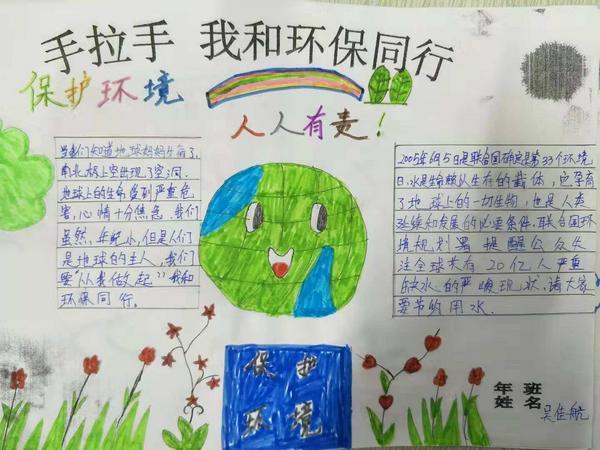 手拉手 我和环保同行
保护环境
人人有责！
当我们知道地球妈妈生病了，
南北极上空出现了空洞，
地球上的生命受到严重危
害，心情十分焦急，我们
虽然，年纪小，但是人们
是地球的主人，我们
要“从我做起”我和
环保同行。
2005年6月5日是联合国确定是第33个环境
日，水是生命赖以生存的载体，它孕育
了地球上的一切生物，也是人类
延续和发展的必要条件，联合国环
境规划署提醒公众关
注全球共有20亿人严重
缺水的严峻现状，请大家
要节约用水。
保护
环境
年 班
姓 名 吴佳航